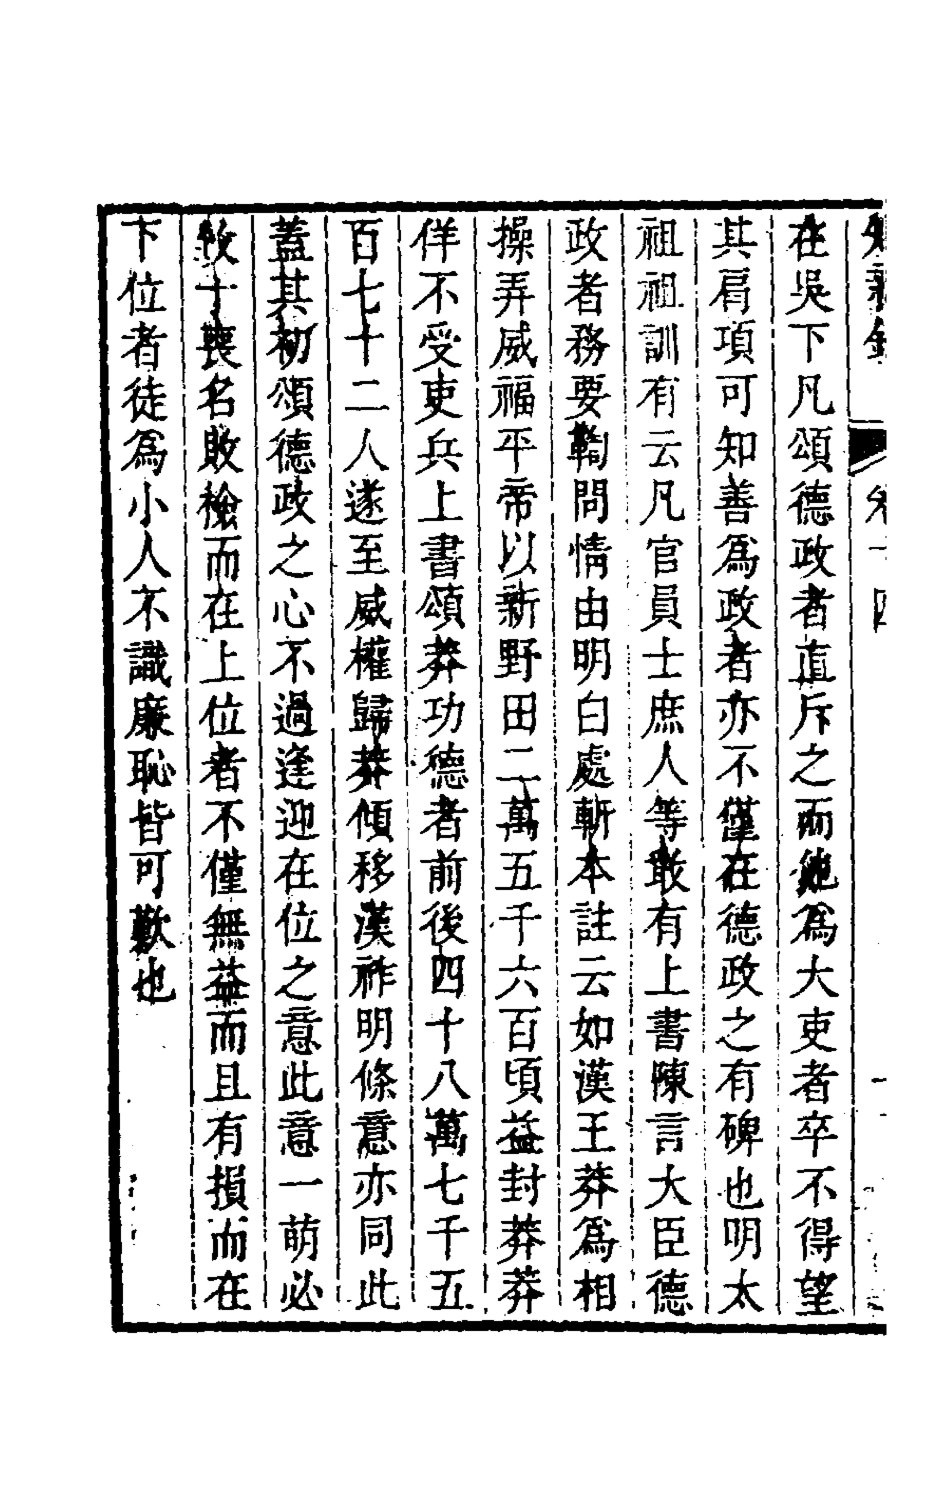 知新錄 卷十四
在吳下凡頌德政者直斥之而他爲大吏者卒不得望
其肩項可知善爲政者亦不僅在德政之有碑也明太
祖祖訓有云凡官員士庶人等敢有上書陳言大臣德
政者務要鞫問情由明白處斬本註云如漢王莽爲相
操弄威福平帝以新野田二萬五千六百頃益封莽莽
佯不受吏兵上書頌莽功德者前後四十八萬七千五
百七十二人遂至威權歸莽傾移漢祚明條意亦同此
蓋其初頌德政之心不過逢迎在位之意此意一萌必
致十喪名敗檢而在上位者不僅無益而且有損而在
下位者徒爲小人不識廉恥皆可歎也